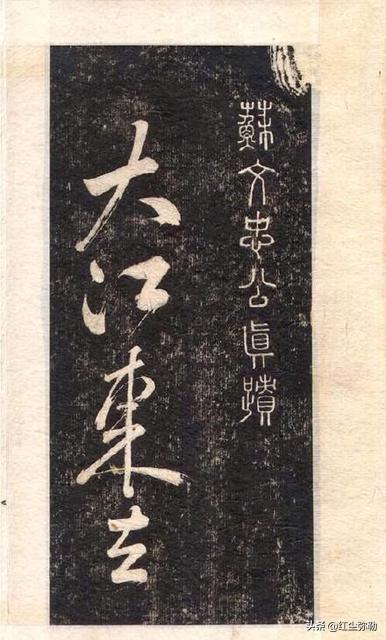 蘇文忠公眞蹟
大江東去
头条 @红尘弥勒